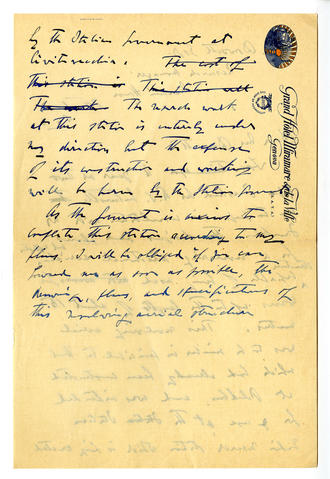 by the Italian Government at
Civitavecchia. The cost of
This station is This station will
The work The research work
at this station is entirely under
my direction but the expense
of its construction and working
will be borne by the Italian Government.
As the Government is anxious to
complete this station according to my
plans, I will be obliged if you can
forward me as soon as possible, the
drawings, plans, and specifications of
this revolving aerial structure
Grand Hôtel Miramare & de la Ville
Genova